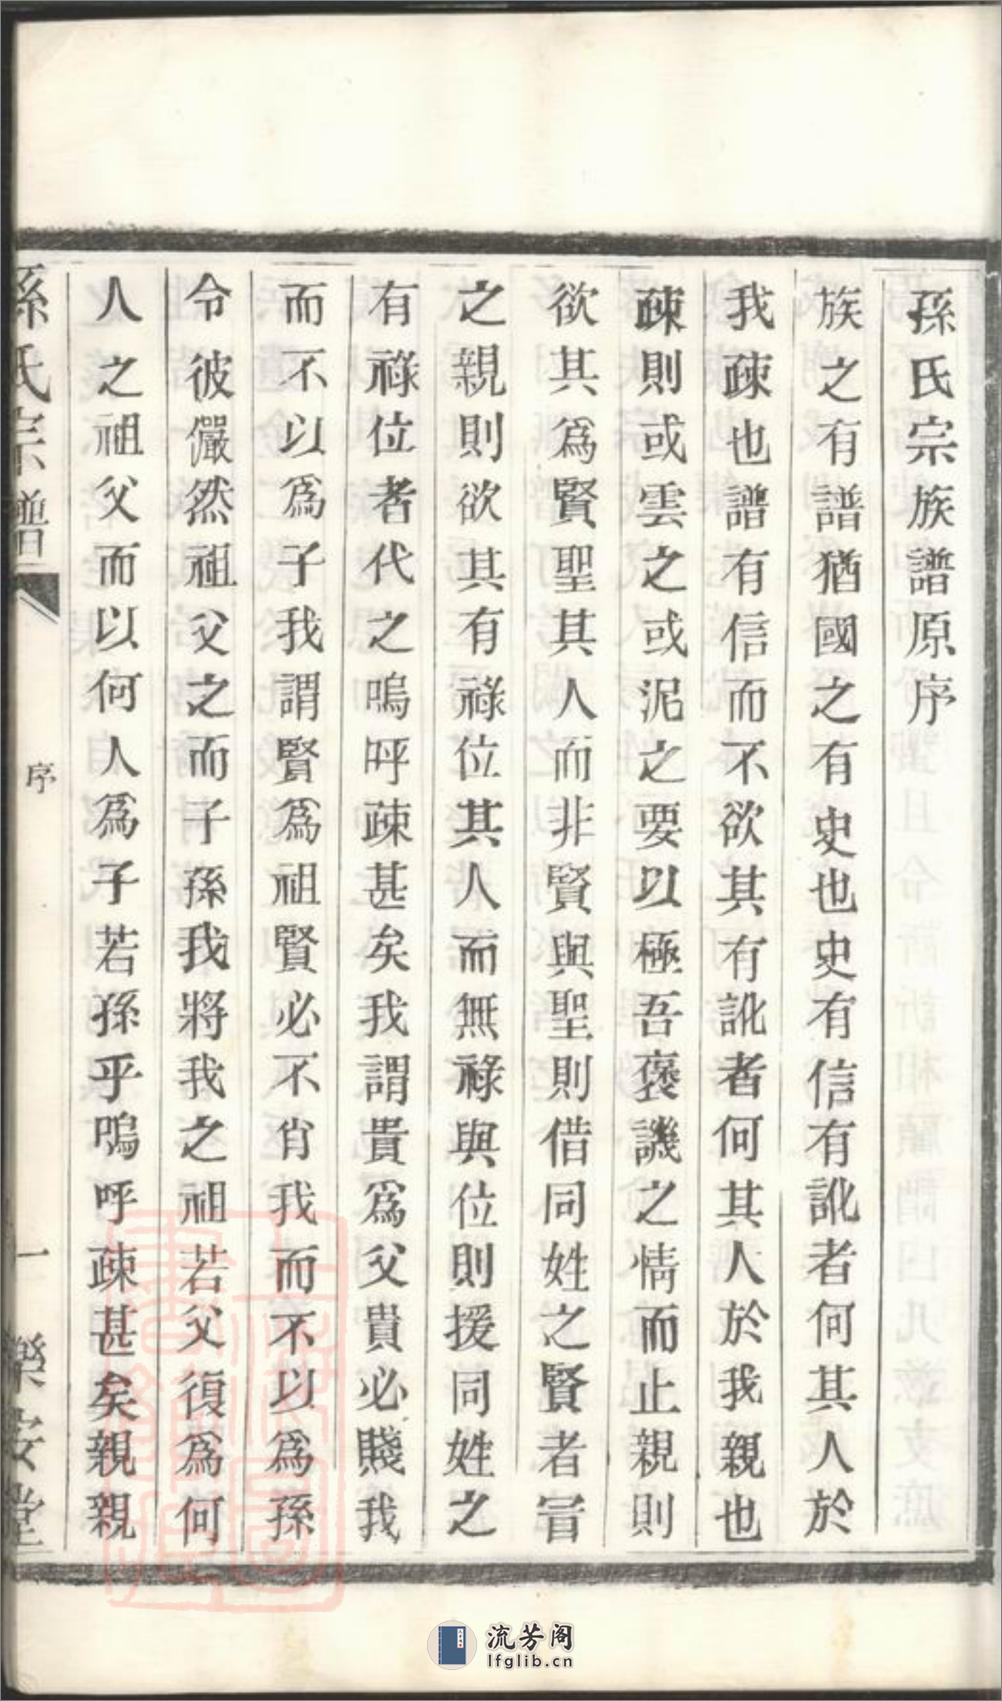 孫氏宗族譜原序
族之有譜猶國之有史也史有信有訛者何其人於
我疎也譜有信而不欲其有訛者何其人於我親也
疎則或雲之或泥之要以極吾褒譏之情而止親則
欲其爲賢聖其人而非賢與聖則借同姓之賢者冒
之親則欲其有祿位其人而無祿與位則援同姓之
有祿位者代之嗚呼疎甚矣我謂貴爲父貴必賤我
而不以爲子我謂賢爲祖賢必不肖我而不以爲孫
令彼儼然祖父之而子孫我將我之祖若父復爲何
人之祖父而以何人爲子若孫乎嗚呼疎甚矣親親
孫氏宗譜
序
一
樂安堂
流芳阁
lfglib.cn